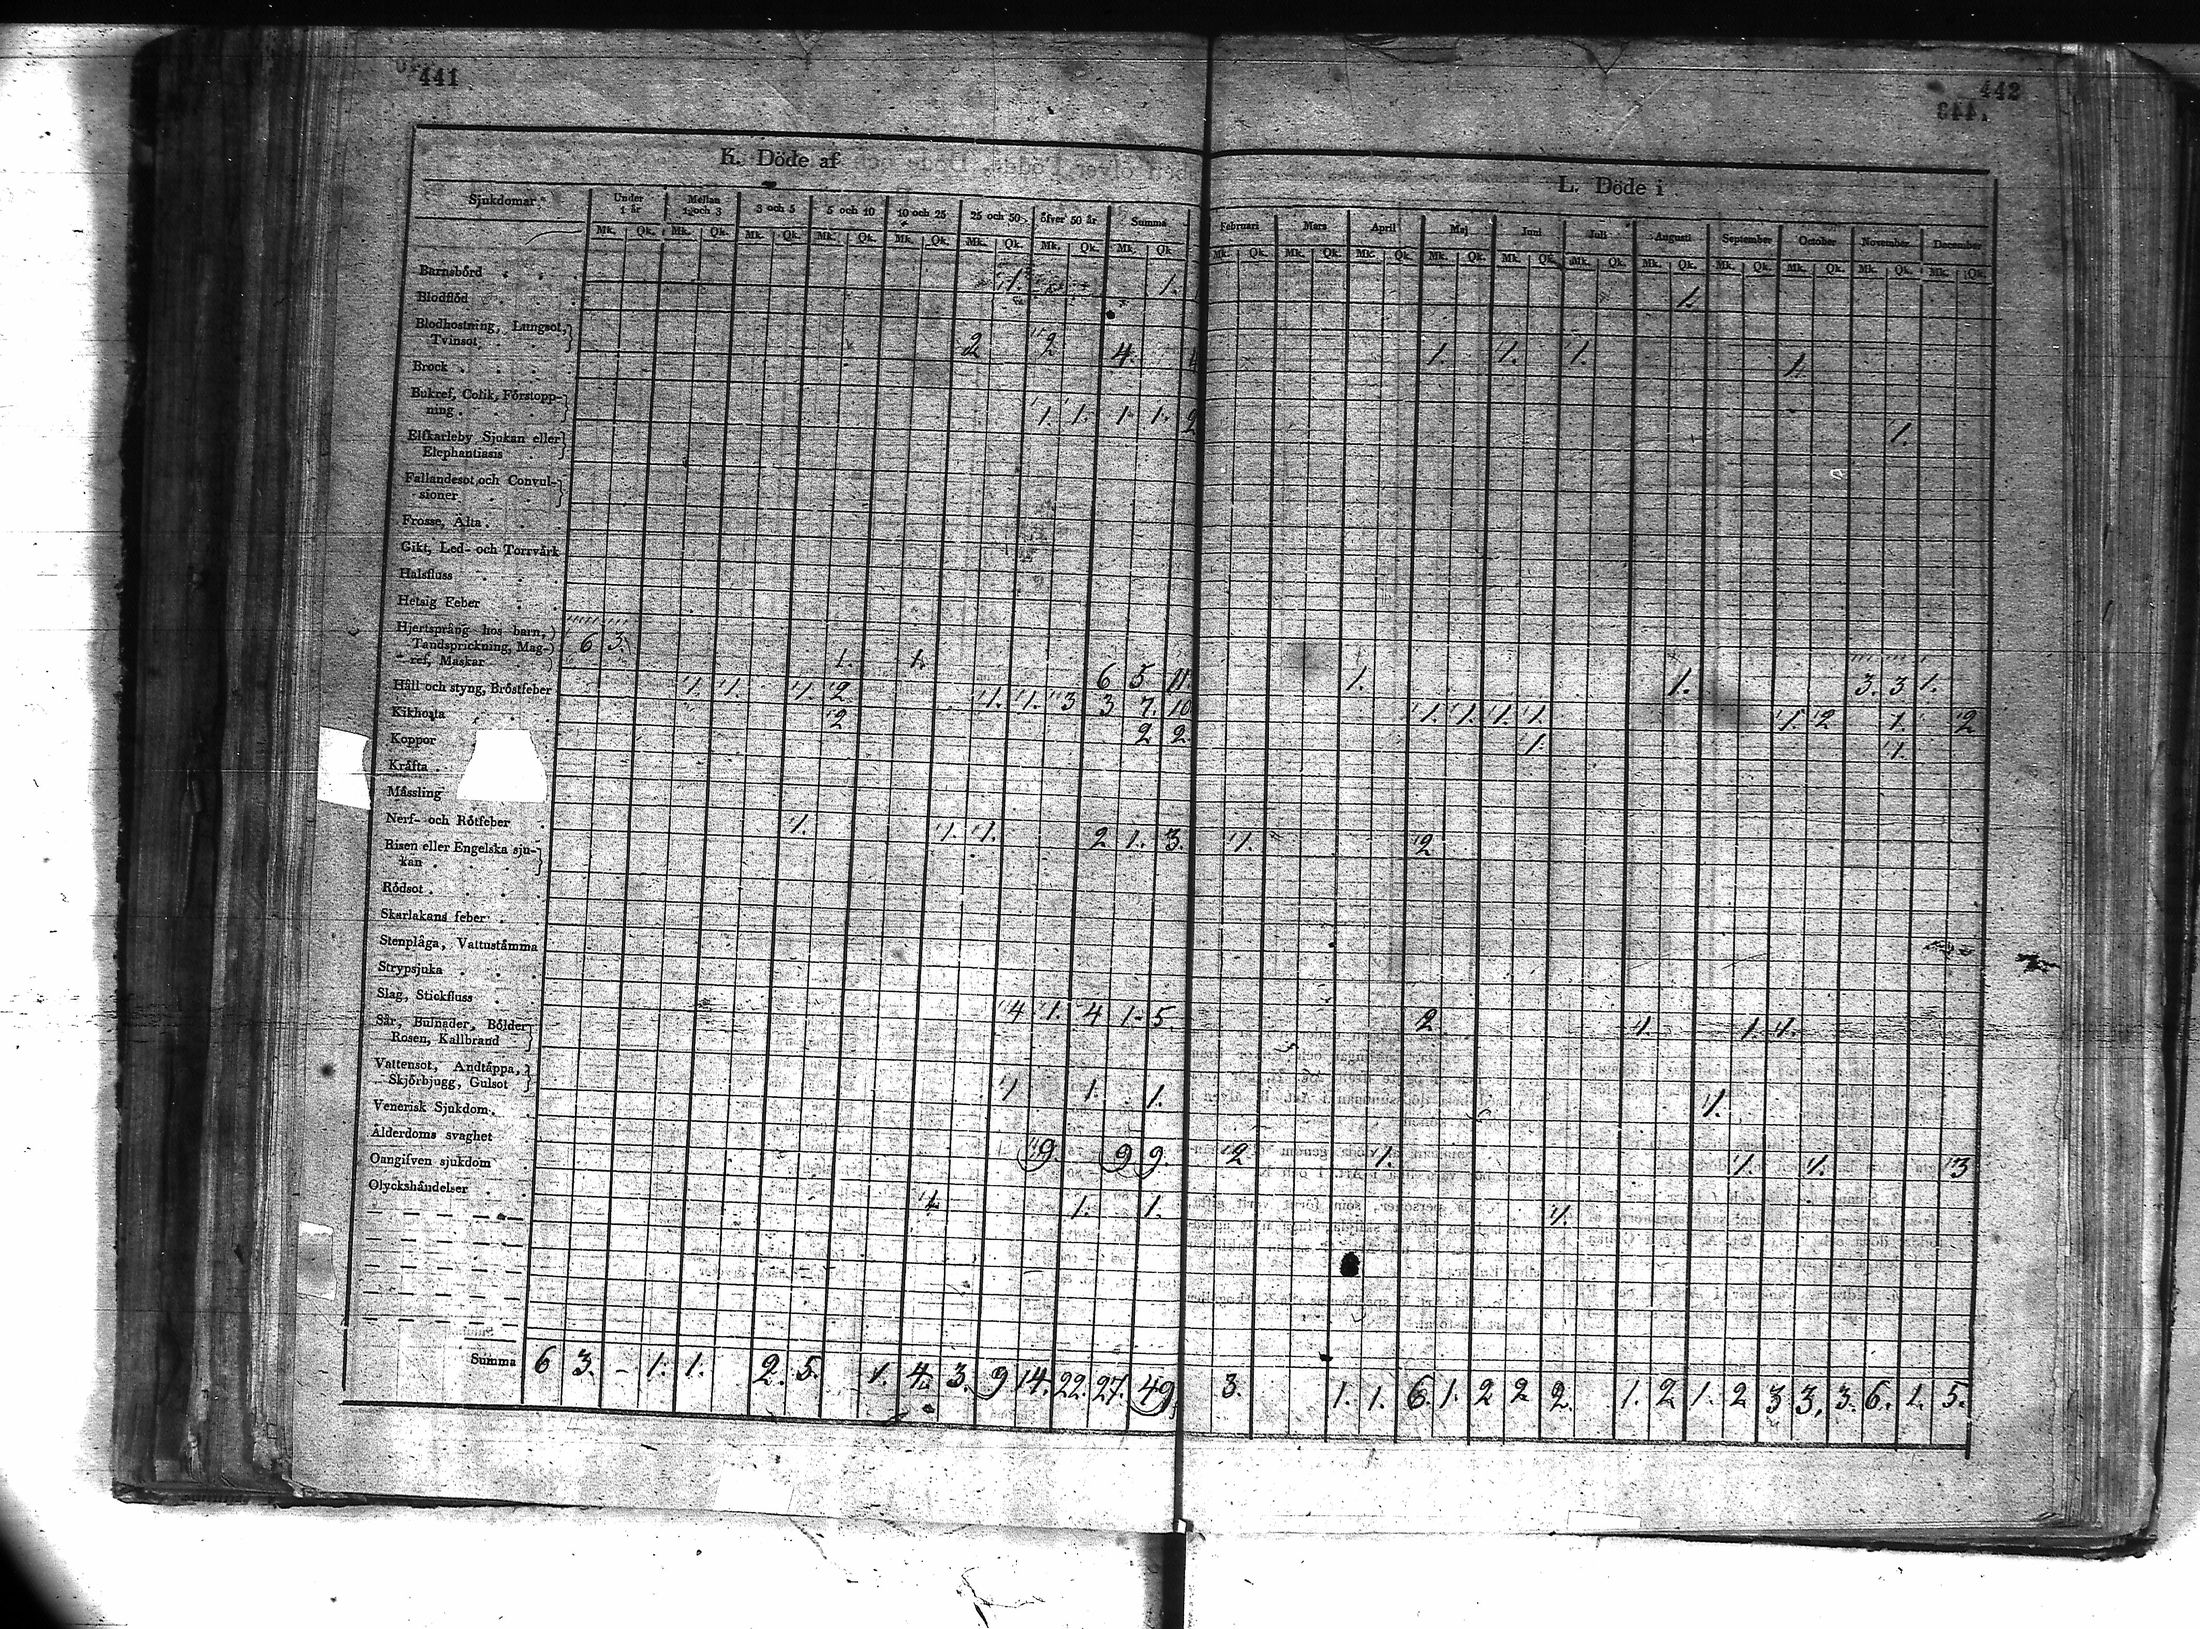 441
442
K. Döde af
L. Döde i
Sjukdomar
Under 1 år
Mellan 1 och 3
3 och 5
5 och 10
10 och 25
25 och 50
öfver 50 år
Summa
Mk. Qk. Mk. Qk. Mk. Qk. Mk. Qk. Mk. Qk. Mk. Qk. Mk. Qk. Mk. Qk.
Februari Mars April Maj Juni Juli Augusti September October November December
Mk. Qk. Mk. Qk. Mk. Qk. Mk. Qk. Mk. Qk. Mk. Qk. Mk. Qk. Mk. Qk. Mk. Qk. Mk. Qk. Mk. Qk.
Barnsbörd 1. 1. 1.
Blodflöd
Blodhostning, Lungsot,
Tvinsot 2 2 4. 1. 1. 1. 1.
Brock
Bukref, Colik, Förstopp-
ning 1. 1. 1. 1. 2 1.
Elfkarleby Sjukan eller
Elephantiasis
Fallandesot och Convul-
sioner
Frosse, Älta
Gikt, Led- och Torrvärk
Halsfluss
Hetsig Feber
Hjertsprång hos barn, 6 3.
Tandsprickning, Mag-
ref, Maskar 1. 1. 6 5 11. 1. 1. 3. 3 1.
Håll och styng, Bröstfeber 1. 1. 1. 2 1. 1. 3 3 7. 10 1. 1. 1. 1. 1. 2 1. 2
Kikhosta 2 2 2 1. 1.
Koppor
Kräfta
Mässling
Nerf- och Rötfeber 1. 1. 1. 2 1. 3. 1. 2
Risen eller Engelska sju-
kan
Rödsot
Skarlakans feber
Stenplåga, Vattustämma
Strypsjuka
Slag, Stickfluss 4 1. 4 1. 5. 2 1. 1. 1.
Sår, Bulnader, Bölder
Rosen, Kallbrand
Vattensot, Andtäppa,
Skjörbjugg, Gulsot 1 1. 1. 1.
Venerisk Sjukdom
Ålderdoms svaghet 9. 9 9. 2 1. 1. 1. 3
Oangifven sjukdom
Olyckshändelser 1. 1. 1. 1.
Summa 6 3. - 1. 1. 2. 5. 1. 4. 3. 9 14. 22. 27. 49. 3. 1. 1. 6. 1. 2 2 2. 1. 2 1. 2 3 3. 3. 6. 1. 5.